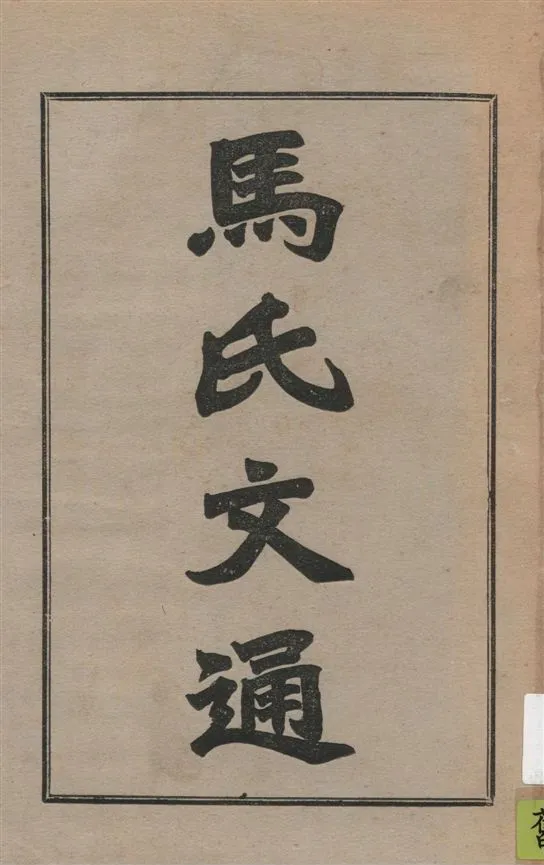 馬氏文通